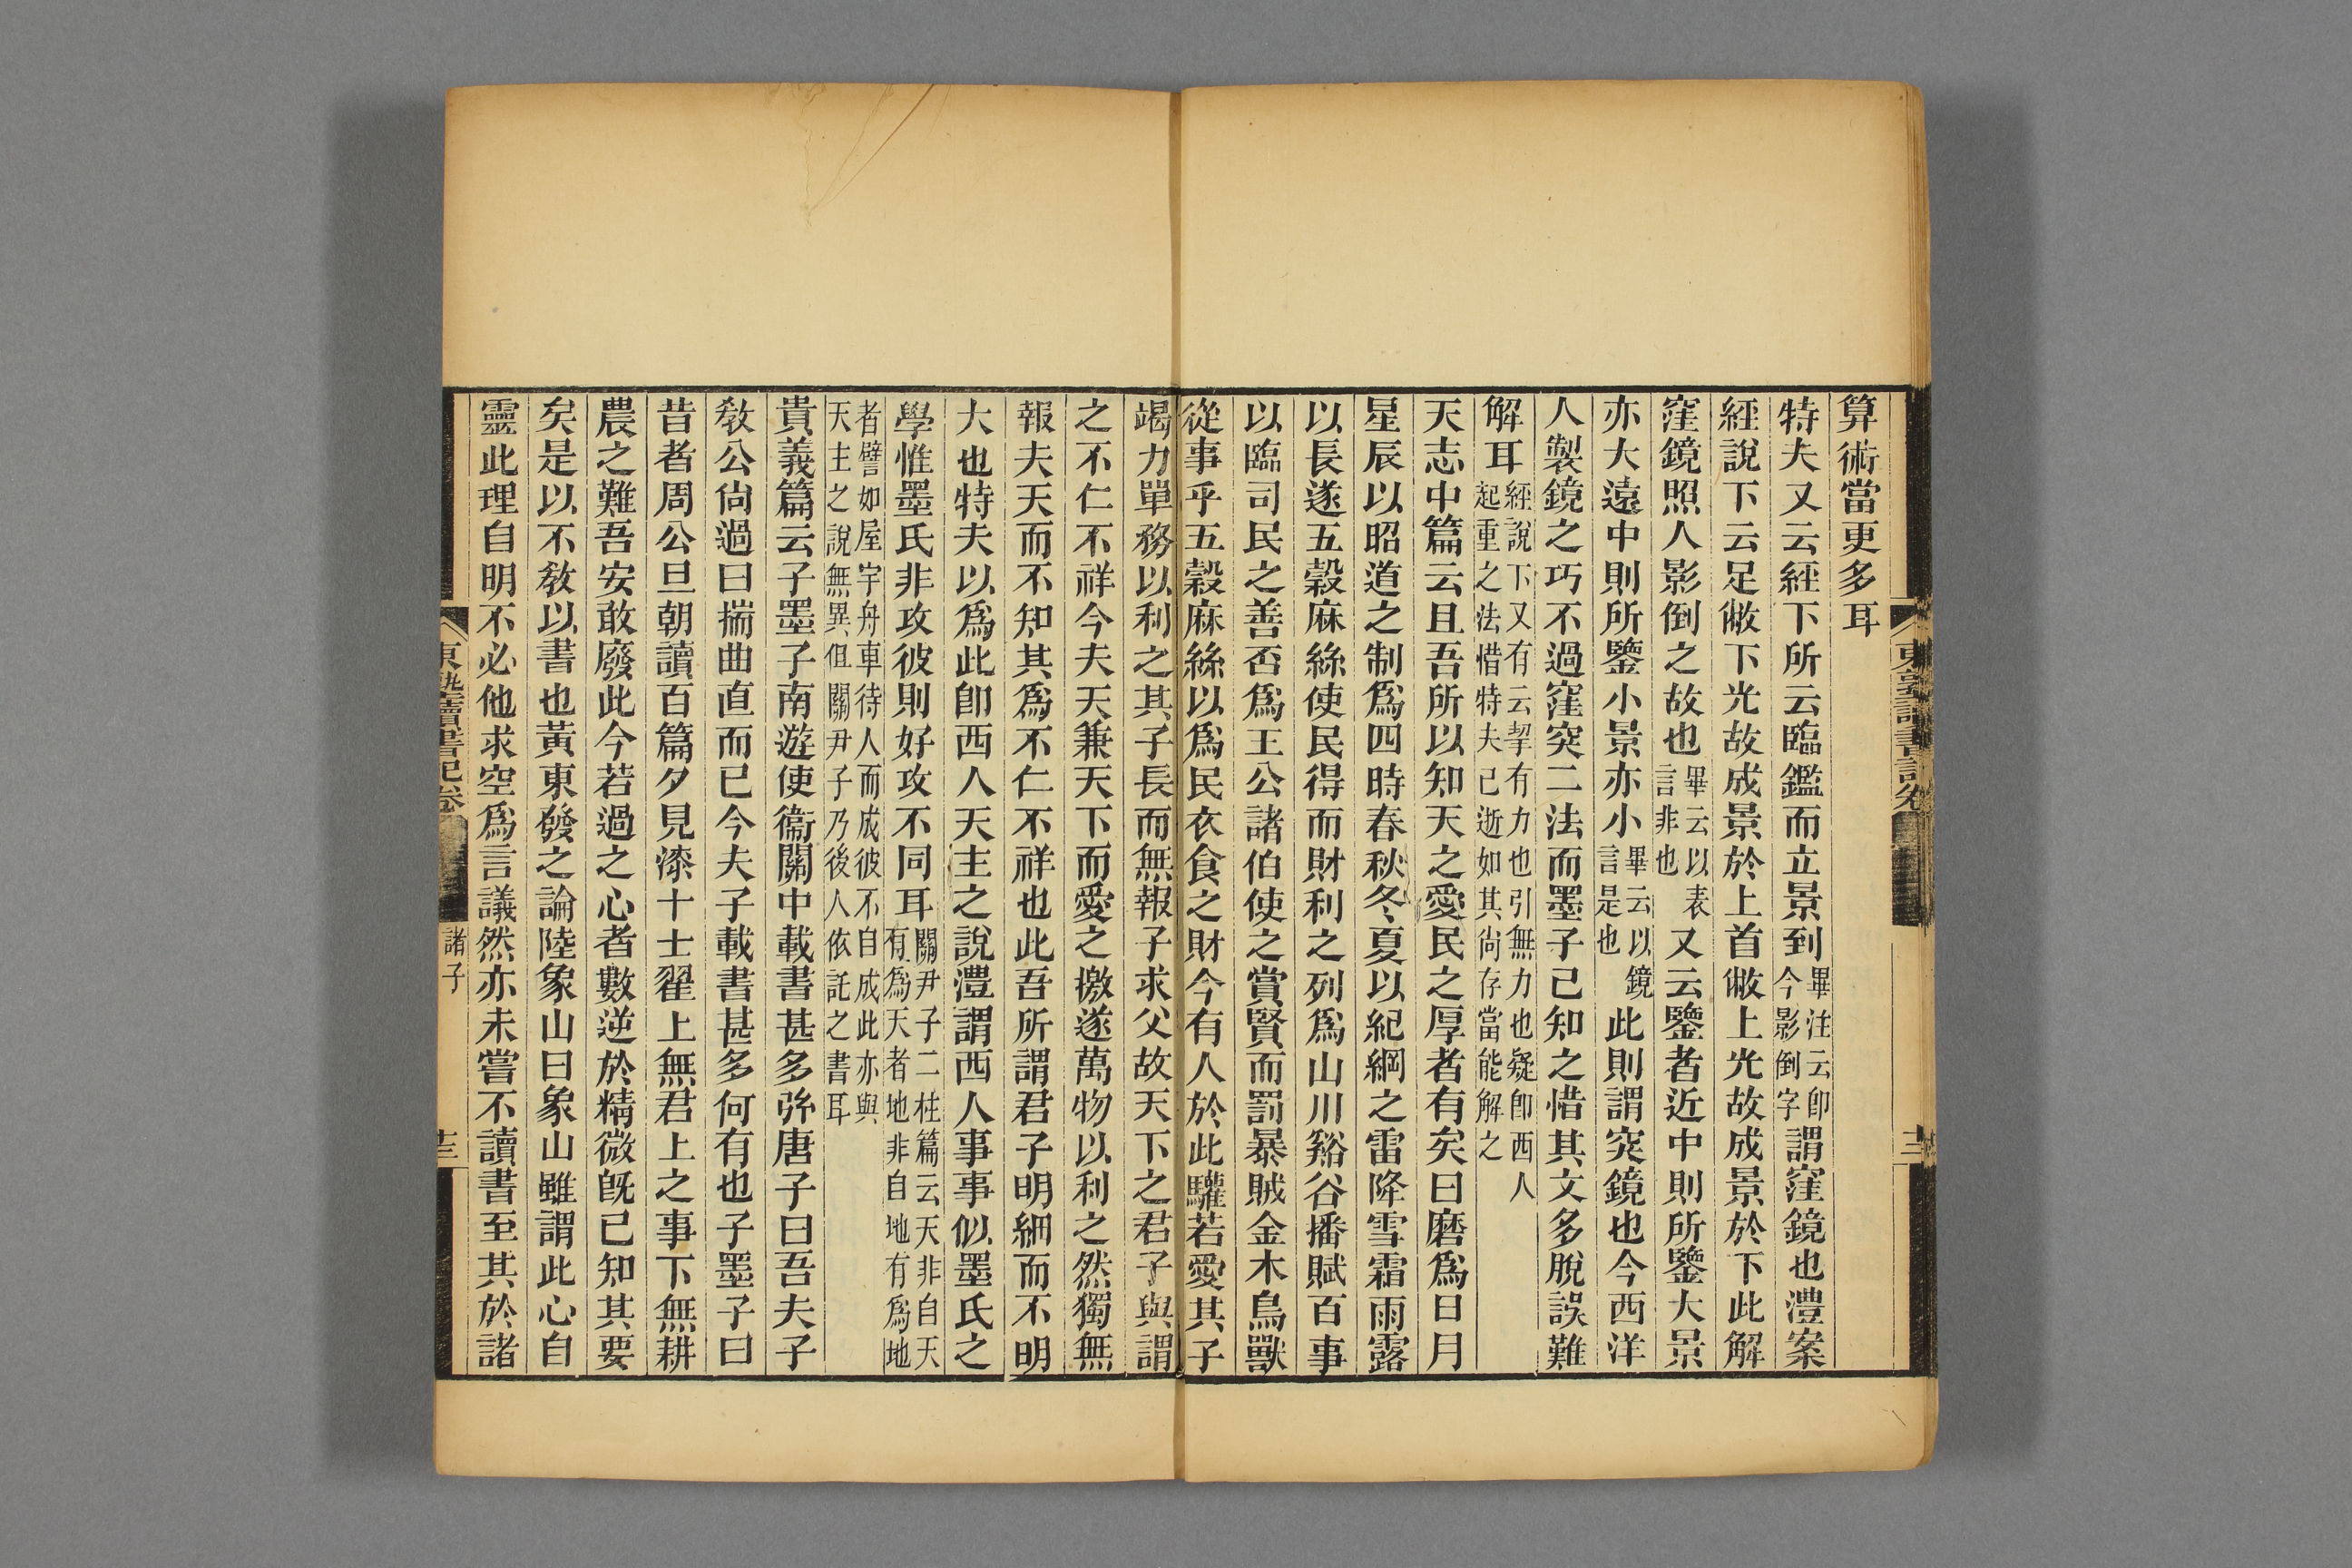 算術當更多耳
特夫又云經下所云臨鑑而立景到畢注云卽今影倒字謂窪鏡也澧案
經說下云足敝下光故成景於上首敝上光故成景於下此解
窪鏡照人影倒之故也畢云以表言非也又云鑒者近中則所鑒大景
亦大遠中則所鑒小景亦小畢云以鏡言是也此則謂突鏡也今西洋
人製鏡之巧不過窪突二法而墨子已知之惜其文多脫誤難
解耳經說下又有云挈有力也引無力也疑卽西人起重之法惜特夫已逝如其尙存當能解之
天志中篇云且吾所以知天之愛民之厚者有矣曰磨爲日月
星辰以昭道之制爲四時春秋冬夏以紀綱之雷降雪霜雨露
以長遂五穀麻絲使民得而財利之列爲山川谿谷播賦百事
以臨司民之善否爲王公諸伯使之賞賢而罰暴賊金木鳥獸
從事乎五穀麻絲以爲民衣食之財今有人於此驩若愛其子
竭力單務以利之其子長而無報子求父故天下之君子與謂
之不仁不祥今夫天兼天下而愛之撽遂萬物以利之然獨無
報夫天而不知其爲不仁不祥也此吾所謂君子明細而不明
大也特夫以爲此卽西人天主之說澧謂西人事事似墨氏之
學惟墨氏非攻彼則好攻不同耳關尹子二柱篇云天非自天有爲天者地非自地有爲地
者譬如屋宇舟車待人而成彼不自成此亦與天主之說無異但關尹子乃後人依託之書耳
貴義篇云子墨子南遊使衞關中載書甚多弥唐子曰吾夫子
敎公尙過曰揣曲直而已今夫子載書甚多何有也子墨子曰
昔者周公旦朝讀百篇夕見漆十士翟上無君上之事下無耕
農之難吾安敢廢此今若過之心者數逆於精微旣已知其要
矣是以不敎以書也黃東發之論陸象山曰象山雖謂此心自
靈此理自明不必他求空爲言議然亦未嘗不讀書至其於諸
東塾讀書記卷
諸子